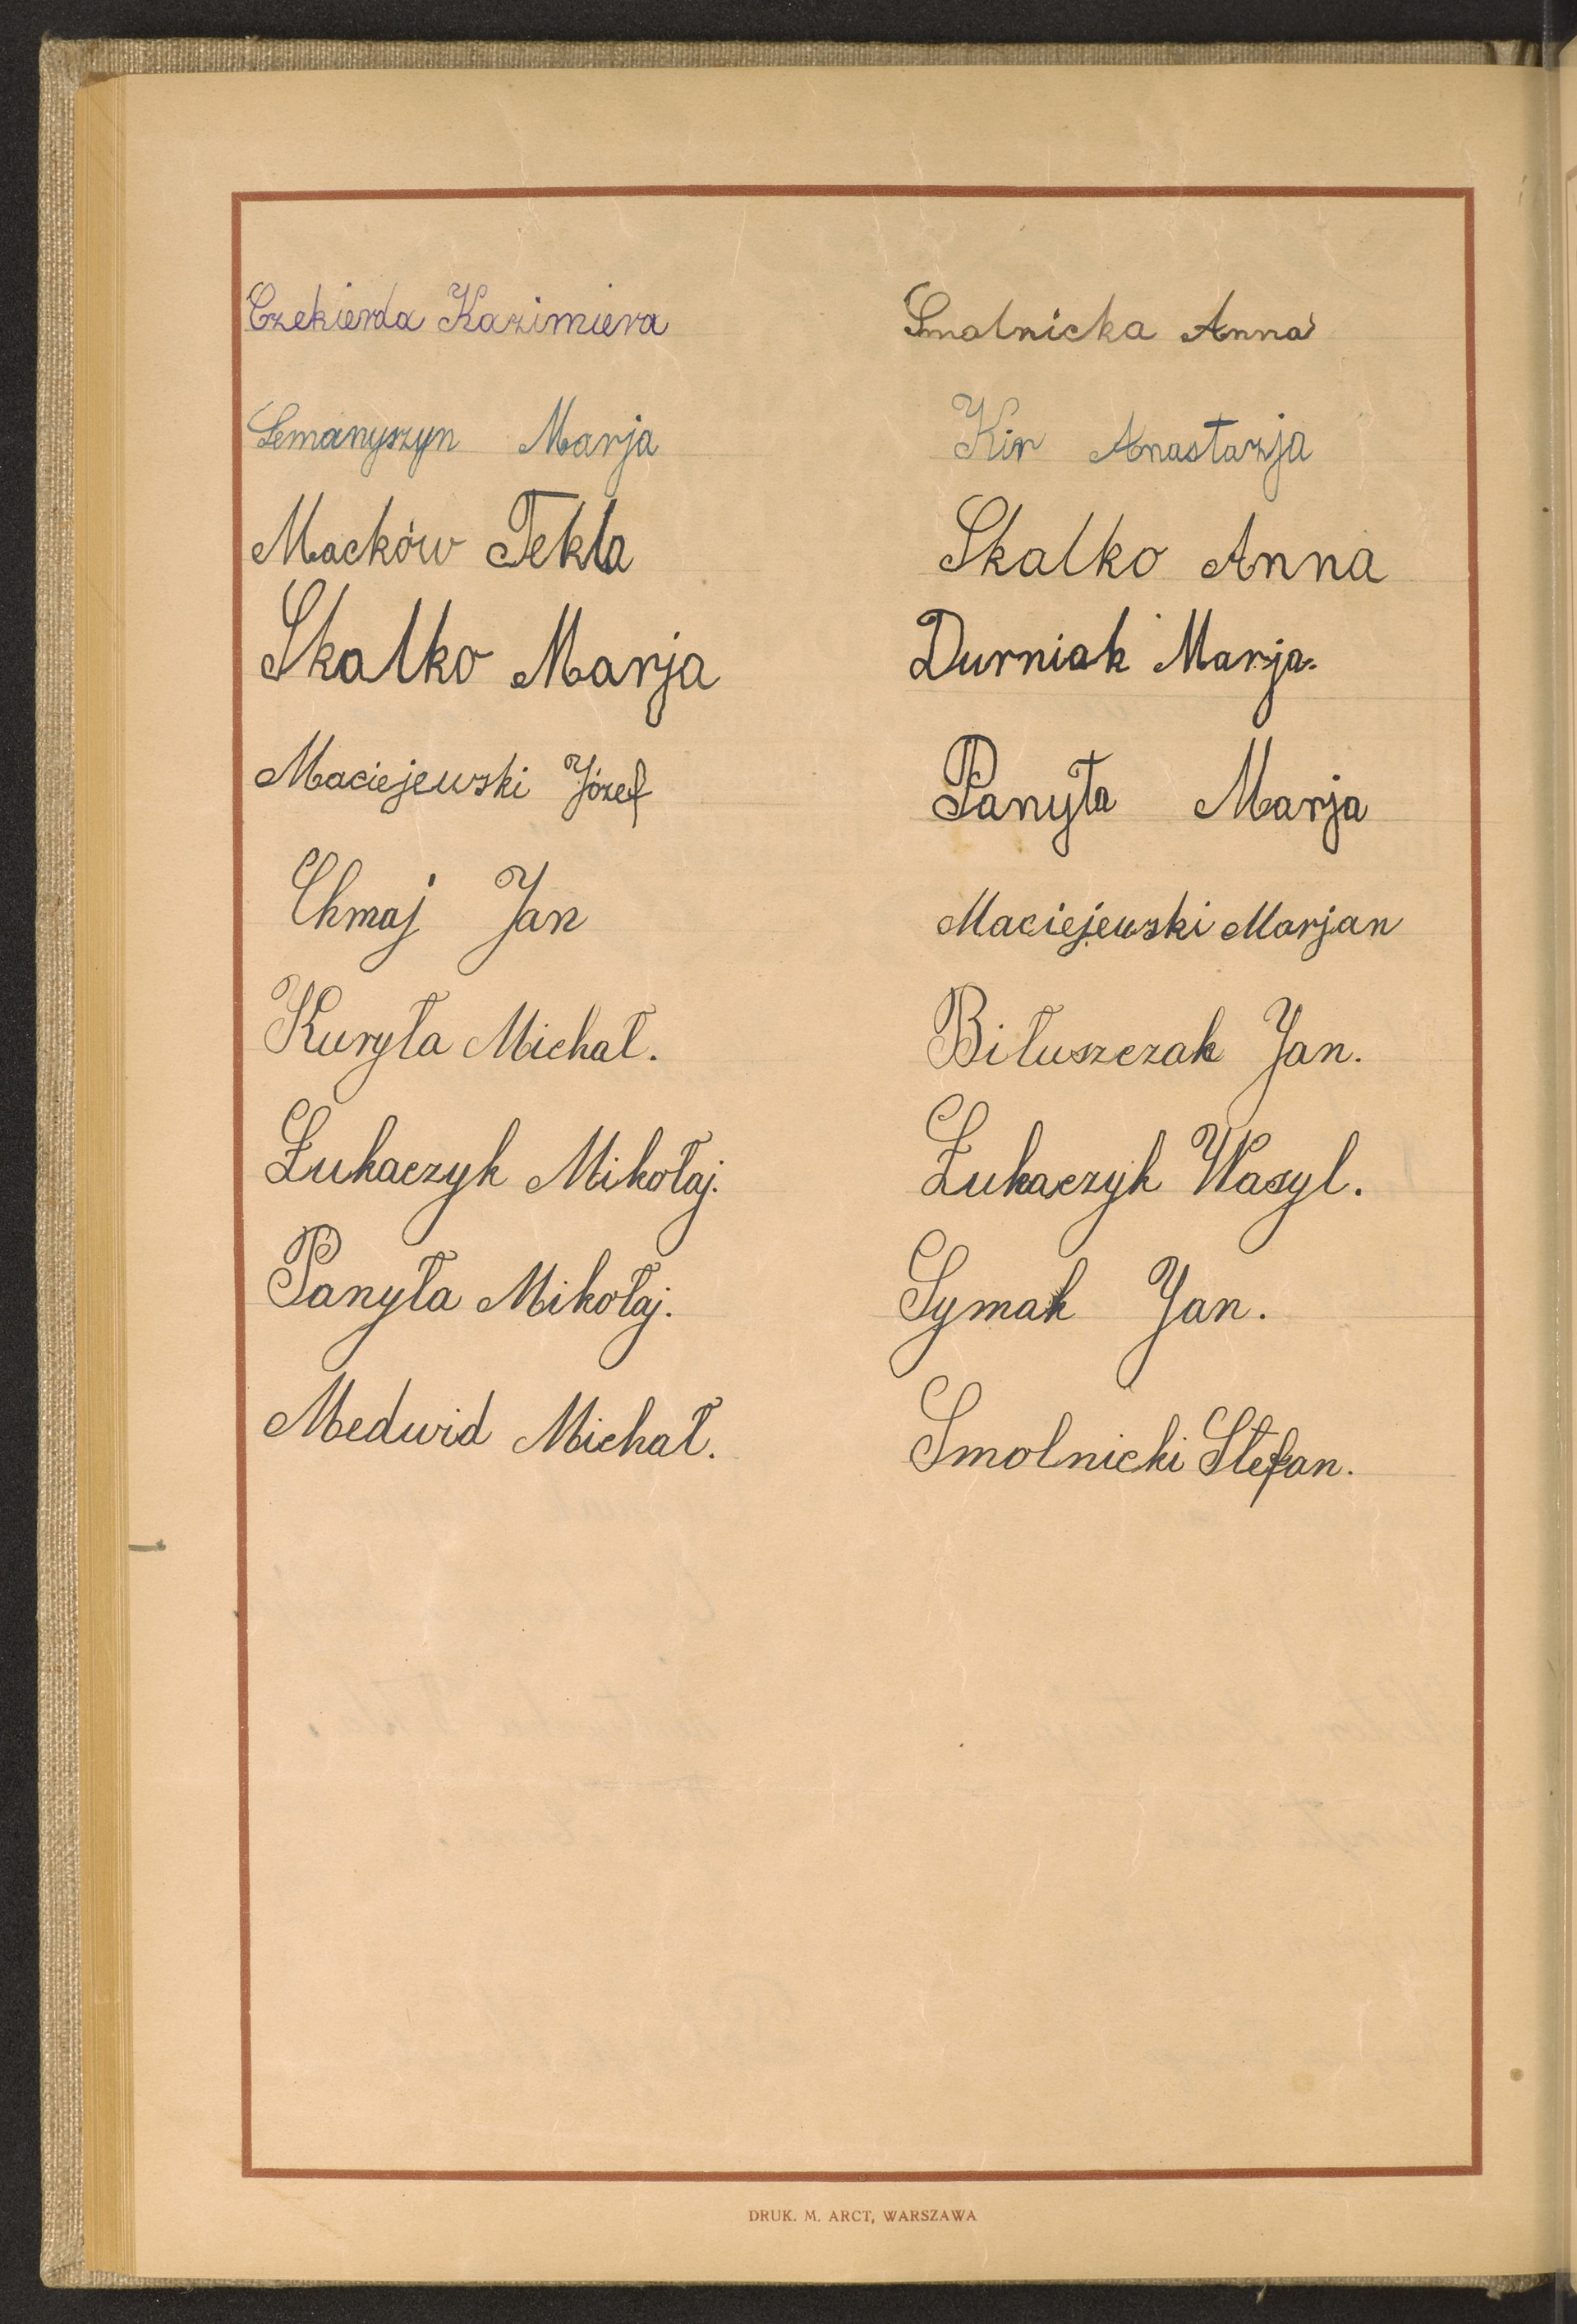 Czekierda Kazimiera
Semanyszyn Marja
Macków Tekla
Skalko Marja
Maciejewski Józef
Chmaj Jan
Kuryła Michał.
Łukaczyk Mikołaj.
Panyła Mikołaj.
Medwid Michał.
Smolnicka Anna
Kir Anastazja
Skalko Anna
Durniak Marja.
Panyła Marja
Maciejewski Marjan
Biłuszczak Jan.
Łukaczyk Wasyl.
Symak Jan.
Smolnicki Stefan.
DRUK. M. ARCT, WARSZAWA